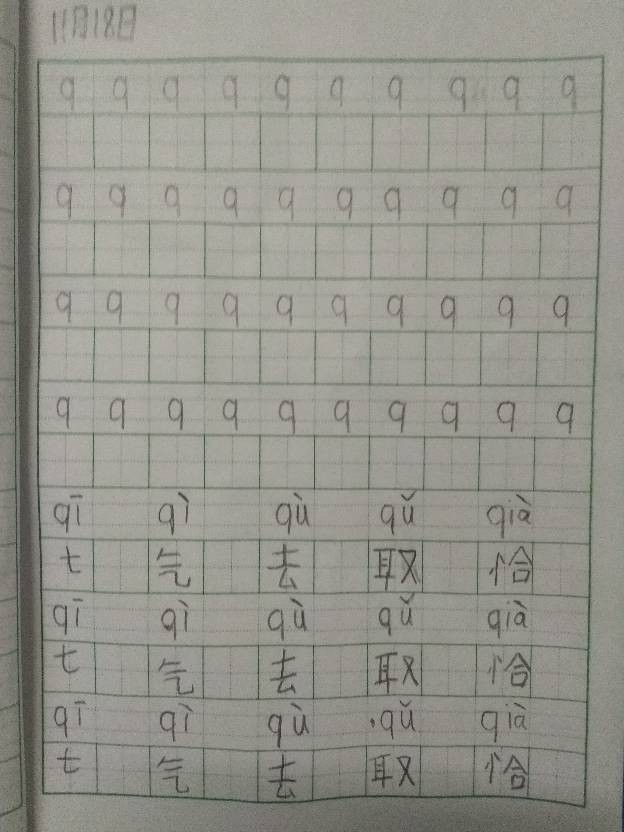 11月18日
q q q q q q q q q q
q q q q q q q q q q
q q q q q q q q q q
q q q q q q q q q q
qī qì qù qǔ qià
七 气 去 取 恰
qī qì qù qǔ qià
七 气 去 取 恰
qī qì qù qǔ qià
七 气 去 取 恰